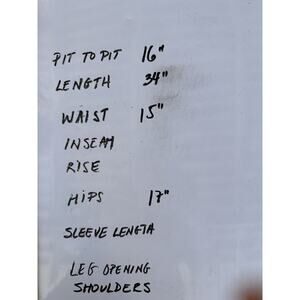 PIT TO PIT 16"
LENGTH 34"
WAIST 15"
INSEAM
RISE
HIPS 17"
SLEEVE LENGTH
LEG OPENING
SHOULDERS